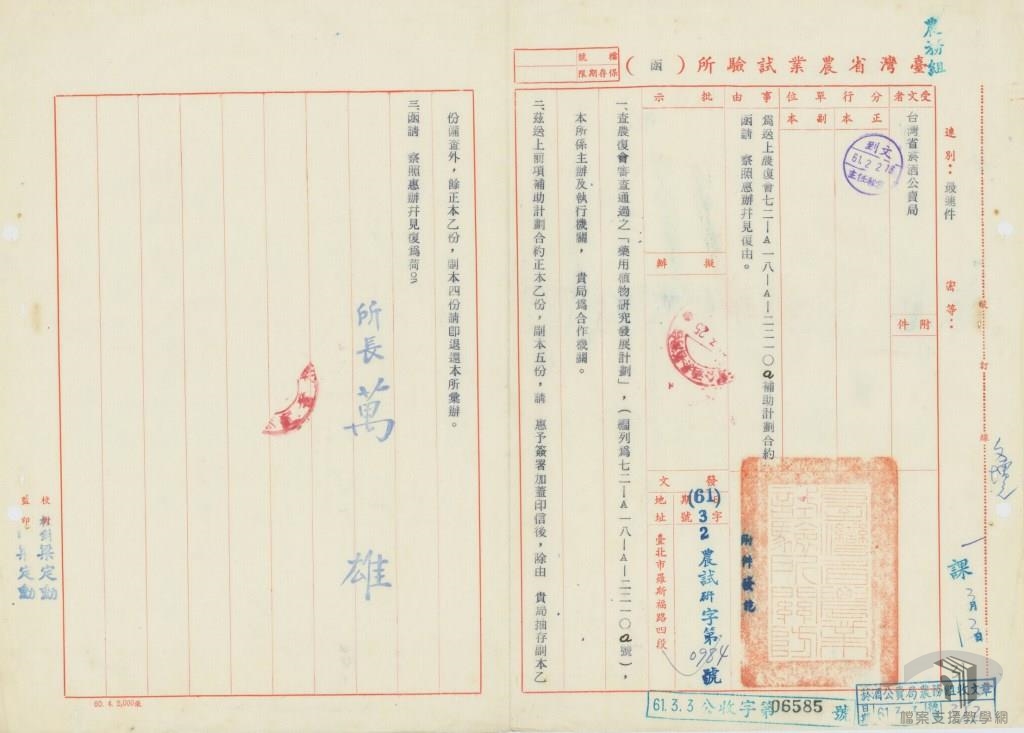 農務組
臺灣省農業試驗所（函）
檔號
保存期限
速別：最速件
密等：
裝訂線
受文者
台灣省菸酒公賣局
附件
分行單位
正本
副本
事由
為送上農復會七二—A一八—A—二二一〇a補助計劃合約
函請　察照惠辦幷見復由。
批示
擬辦
發文
日期
字號
地址
(61)
3 3 2 農試研字第0984號
臺北市羅斯福路四段
附件發訖
一、查農復會審查通過之「藥用植物研究發展計劃」，（編列為七二—A一八—A—二二一〇a號），
本所係主辦及執行機關，　貴局為合作機關。
二、茲送上前項補助計劃合約正本乙份，副本五份，請　惠予簽署加蓋印信後，除由　貴局抽存副本乙
份備查外，餘正本乙份，副本四份請卽退還本所彙辦。
三、函請　察照惠辦幷見復為荷。
所長萬　雄
校對
監印
梁定勳
一課
61.3.3 公收字第06585號
菸酒公賣局農務組收文章
60.4.2,000張
檔案支援教學網